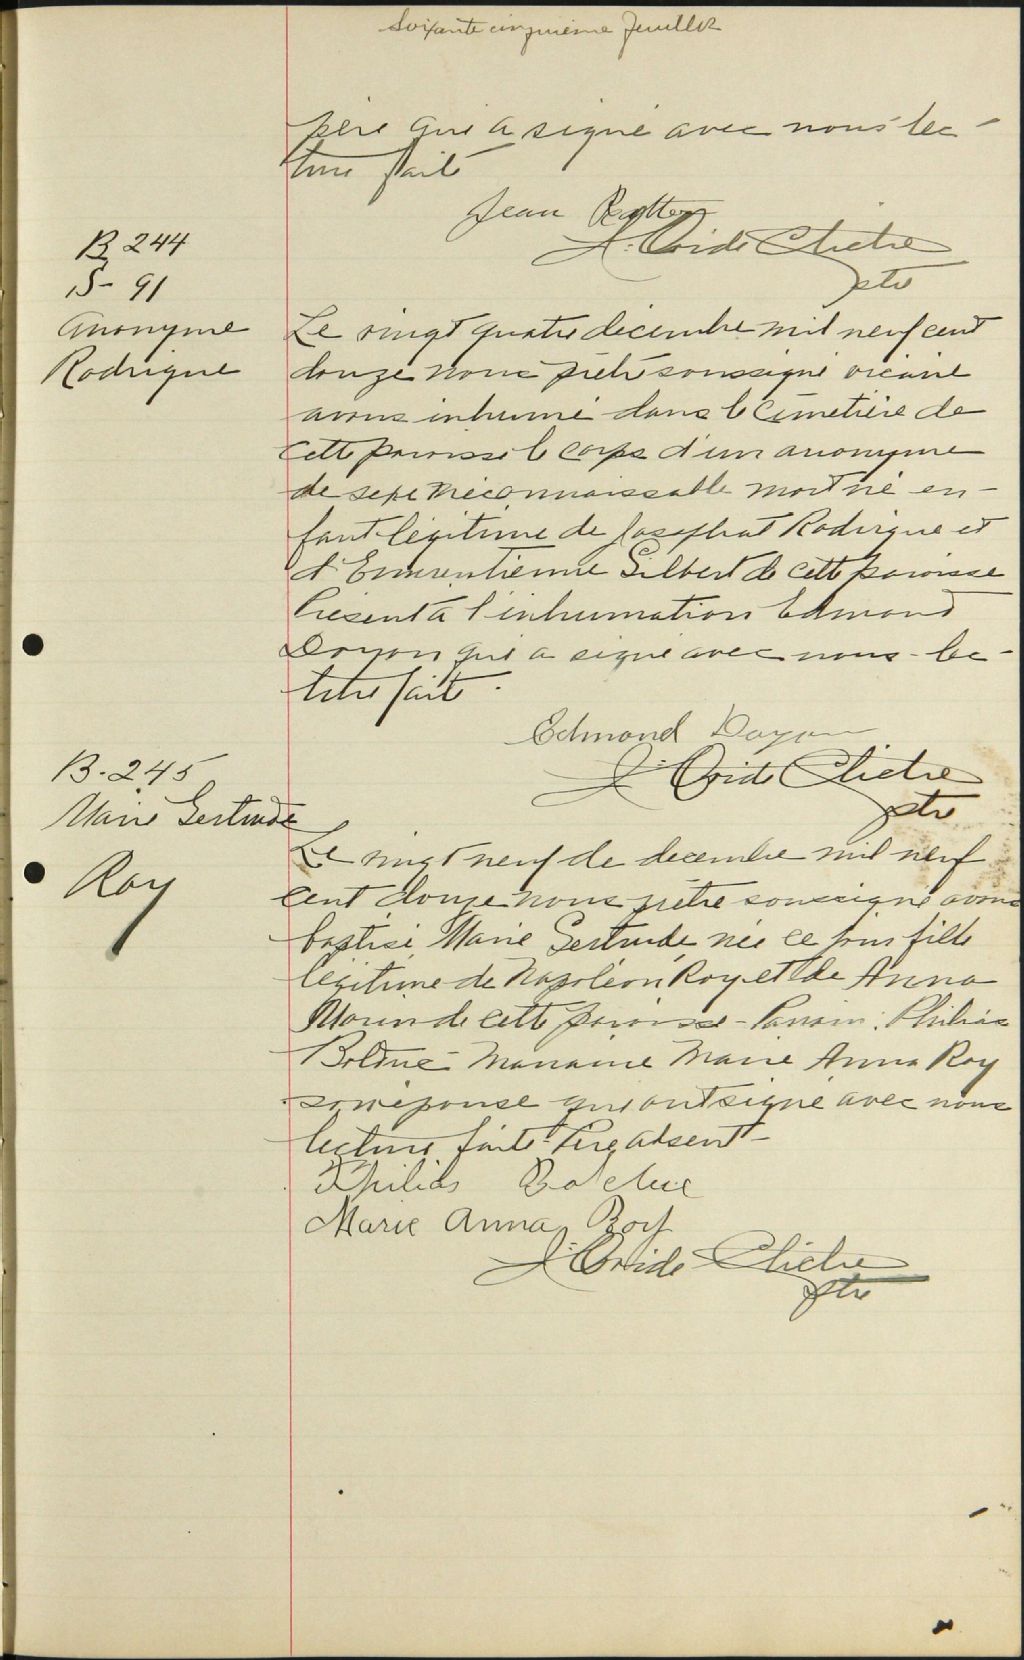 Soixante cinquième feuillet
père qui a signé avec nous lec-
ture faite
Jean
J. Ovide Cliche
ptre
B 244
S- 91
Anonyme
Rodrigue
Le vingt quatre decembre mil neuf cent
douze nous prêtre soussigné vicaire
avons inhumé dans le cimetière de
cette paroisse le corps d'un anonyme
de sexe méconnaissable mort né en-
fant légitime de Josaphat Rodrigue et
d'Emerentienne Gilbert de cette paroisse
Présent à l'inhumation Edmond
Doyon qui a signé avec nous - lec-
ture faite.
Edmond Doyon
J. Ovide Cliche
ptre
B. 245
Marie Gertrude
Roy
Le vingt neuf de decembre mil neuf
cent douze nous prêtre soussigné avons
baptisé Marie Gertrude née ce jour fille
légitime de Napoléon Roy et de Anna
Morin de cette paroisse - Parrain: Philias
Bolduc - Marraine Marie Anna Roy
son épouse qui ont signé avec nous
lecture faite. Père absent -
Philias Bolduc
Marie Anna Roy
J. Ovide Cliche
ptre